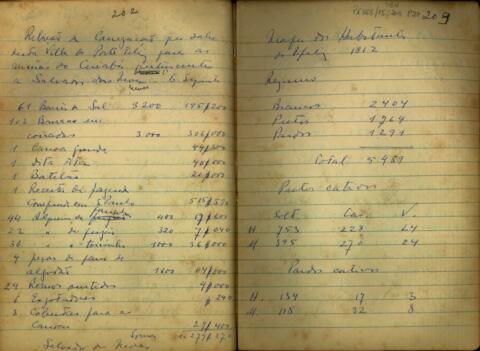 202
Relação da Carregação que sahe
desta Villa de Porto Feliz para as
minas do Cuiabá pertencente
a Salvador das Neves
61 Barris de Sal 3200 195/200
102 Bruacas em
3.000 306/000
1 Canoa grande 44/800
1 dita 40/000
1 Batelão 20/000
1 Receita de fazenda
Comprada em S. Paulo
44 Alqueires de farinha 400 17/600
22 " de feijão 320 7/040
36 " toucinho 1000 36/000
4 peças de pano de
algodão 1600
24 Remos sortidos 4/000
6 Esgotadores /240
3 Cobertas para a
Canoa
Salvador das Neves
209
Mappa dos Habitantes
1812
Resumo
Brancos 2404
Pretos 1764
Pardos 1291
Total 5459
Pretos cativos
Solt. Cas. V.
H 753 228 64
M 395 270 24
Pardos cativos
H. 134 17 3
M 118 32 8